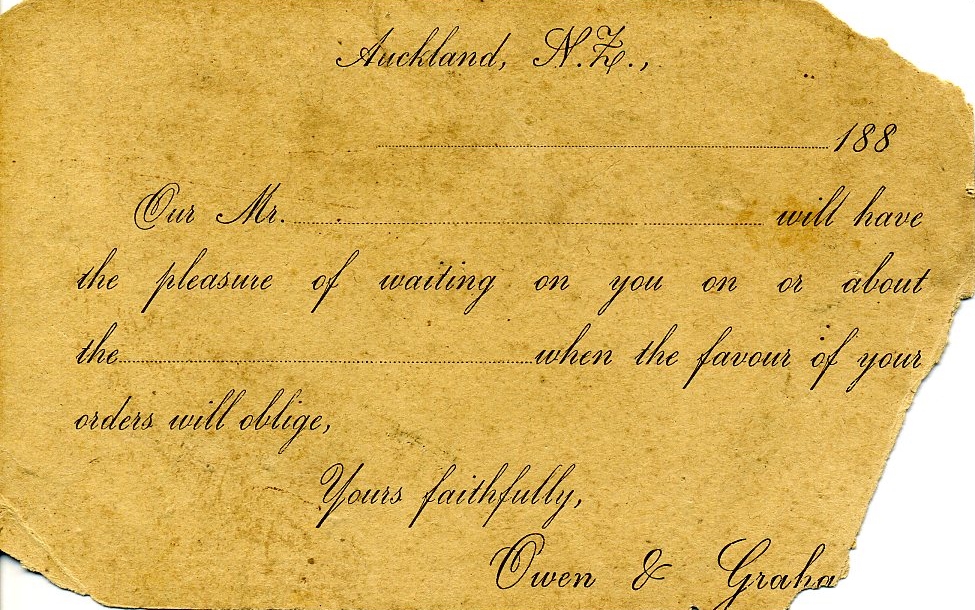 Auckland, N.Z.,
188
Our Mr. will have
the pleasure of waiting on you on or about
the when the favour of your
orders will oblige,
Yours faithfully,
Owen & Graha